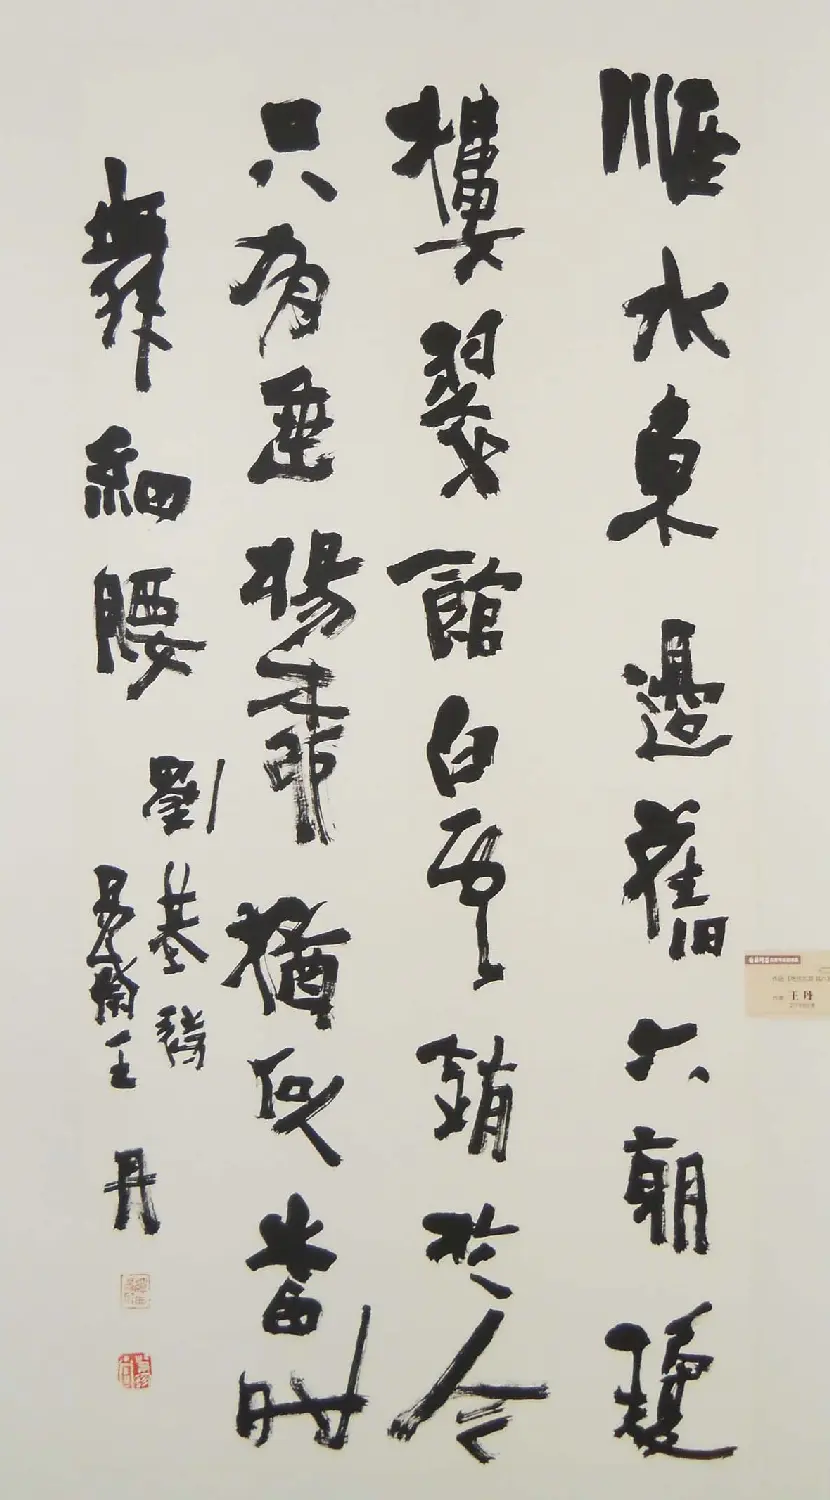 淮水東邊舊六朝瓊
樓翠館白雲銷於今
只有垂楊柳猶似當時
舞細腰
劉基詩
王丹
王丹